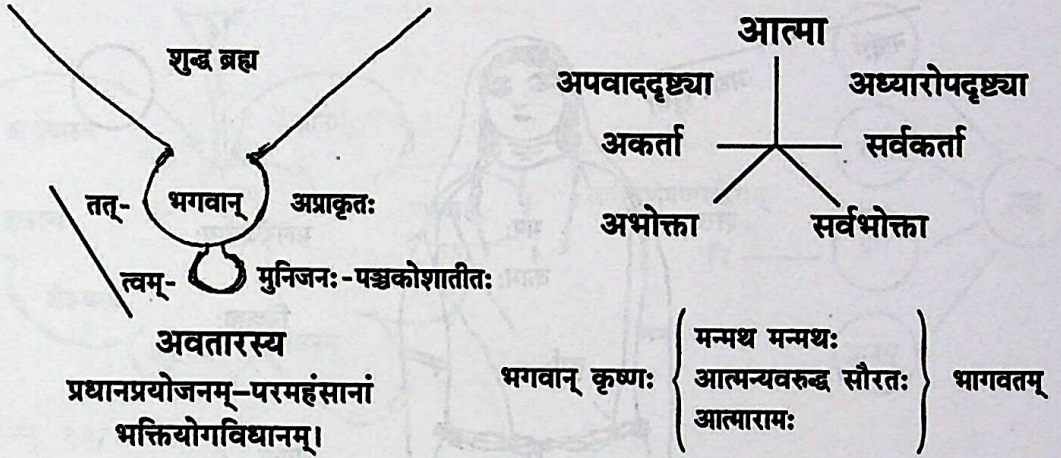 शुद्ध ब्रह्म
तत्- भगवान् अप्राकृतः
त्वम्- मुनिजनः-पञ्चकोशातीतः
अवतारस्य
प्रधानप्रयोजनम्–परमहंसानां
भक्तियोगविधानम्।
आत्मा
अपवाददृष्ट्या अध्यारोपदृष्ट्या
अकर्ता सर्वकर्ता
अभोक्ता सर्वभोक्ता
मन्मथ मन्मथः
भगवान् कृष्णः आत्मन्यवरुद्ध सौरतः भागवतम्
आत्मारामः